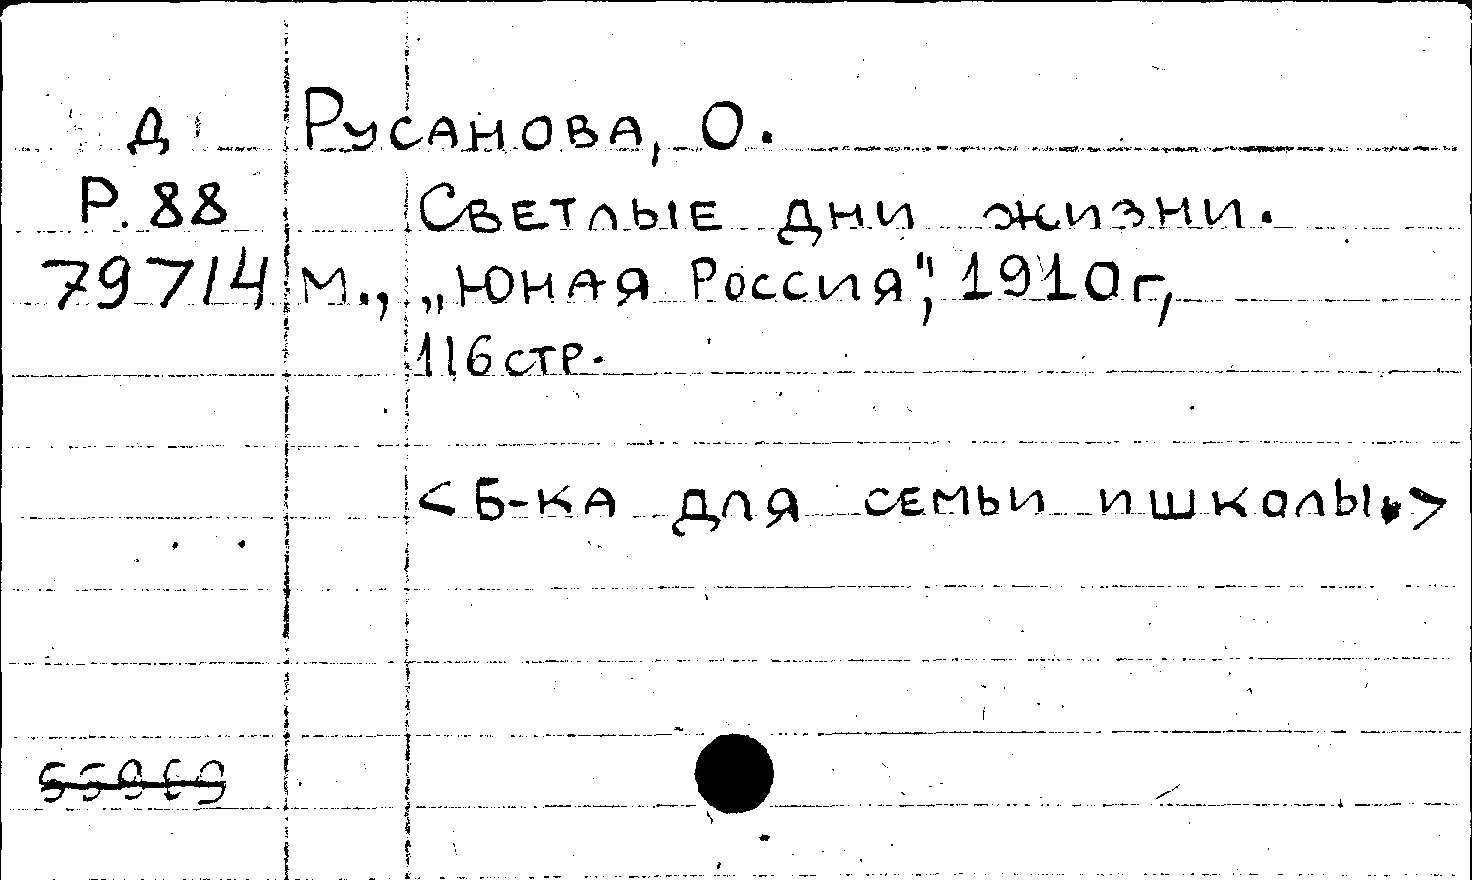 Д Русанова, О.
Р.88 Светлые дни жизни.
79714 М., „Юная Россия", 1910г,
116 стр.
<Б-ка для семьи и школы.>